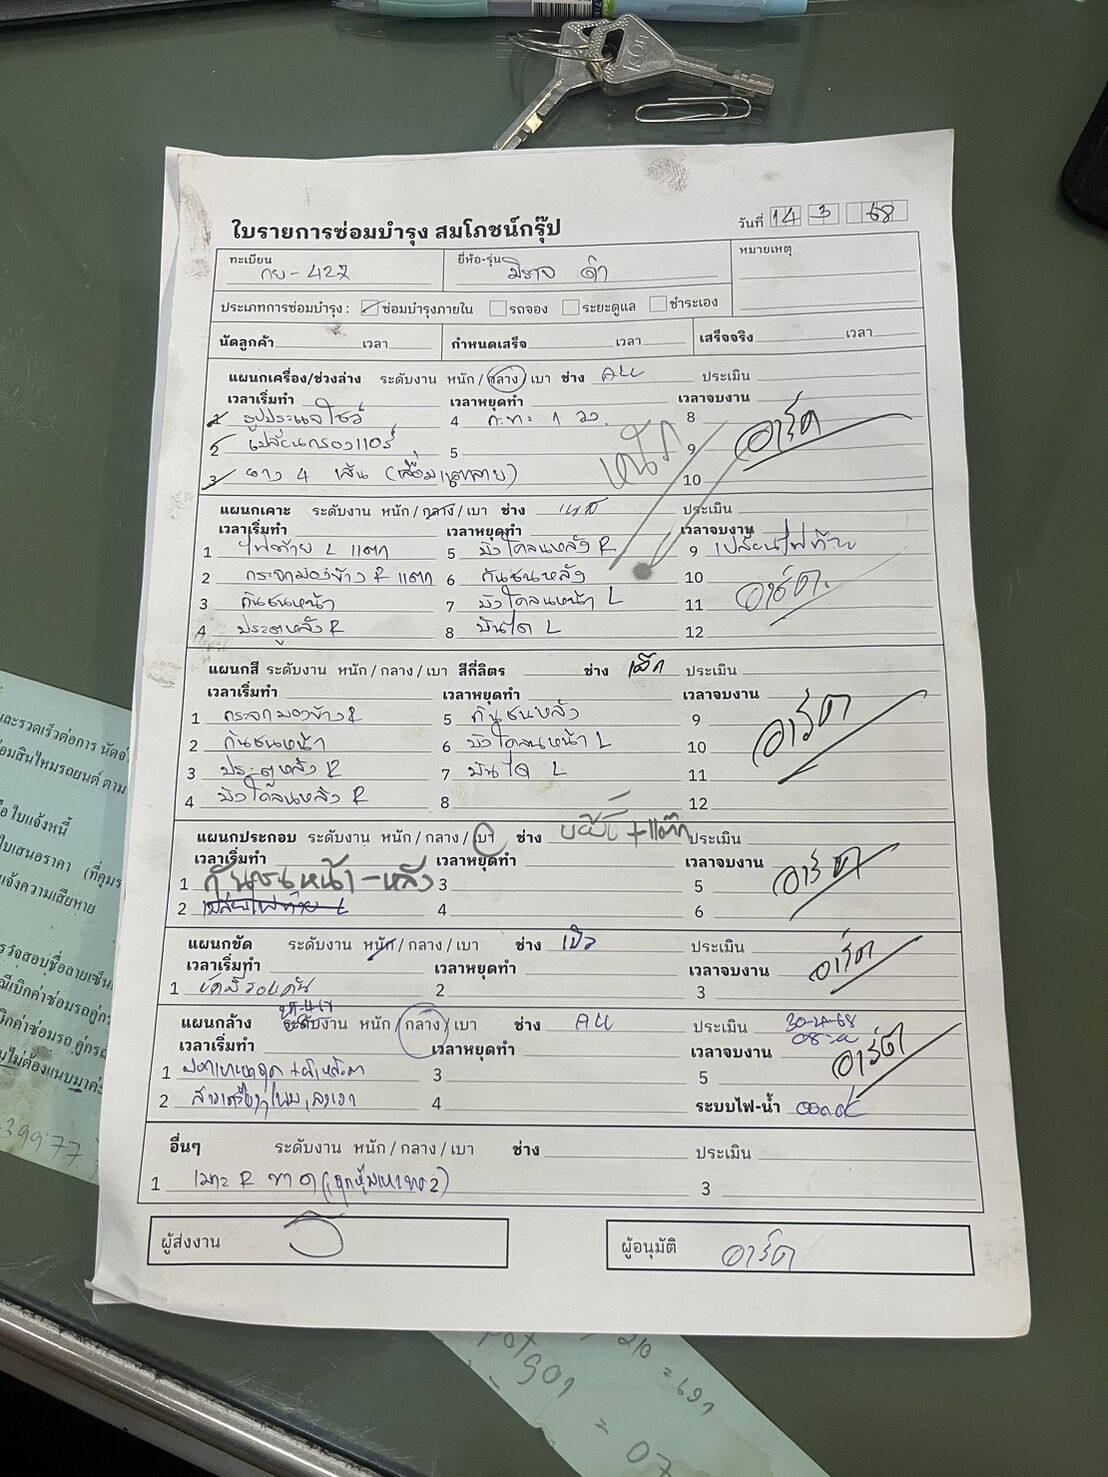 ใบรายการซ่อมบำรุง สมโภชน์กรุ๊ป
วันที่ 14 3 68
ทะเบียน กย-427
ยี่ห้อ-รุ่น มิราจ ดำ
หมายเหตุ
ประเภทการซ่อมบำรุง : ซ่อมบำรุงภายใน รถจอง ระยะดูแล ชำระเอง
นัดลูกค้า เวลา กำหนดเสร็จ เวลา เสร็จจริง เวลา
แผนกเครื่อง/ช่วงล่าง ระดับงาน หนัก / กลาง / เบา ช่าง ALL ประเมิน
เวลาเริ่มทำ เวลาหยุดทำ เวลาจบงาน
1 4 8
2 เปลี่ยนกรองแอร์ 5 9
3 ยาง 4 เส้น 10
อาร์ต
แผนกเคาะ ระดับงาน หนัก / กลาง / เบา ช่าง ประเมิน
เวลาเริ่มทำ เวลาหยุดทำ เวลาจบงาน
1 ไฟท้าย L แตก 5 บังโคลนหลัง R 9 เปลี่ยนไฟท้าย
2 กระจกมองข้าง R แตก 6 กันชนหลัง 10
3 กันชนหน้า 7 บังโคลนหน้า L 11
4 ประตูหลัง R 8 บันได L 12
อาร์ต
แผนกสี ระดับงาน หนัก / กลาง / เบา สีกี่ลิตร ช่าง เล็ก ประเมิน
เวลาเริ่มทำ เวลาหยุดทำ เวลาจบงาน
1 กระจกมองข้าง R 5 กันชนหลัง 9
2 กันชนหน้า 6 บังโคลนหน้า L 10
3 ประตูหลัง R 7 บันได L 11
4 บังโคลนหลัง R 8 12
อาร์ต
แผนกประกอบ ระดับงาน หนัก / กลาง / เบา ช่าง ประเมิน
เวลาเริ่มทำ เวลาหยุดทำ เวลาจบงาน
1 กันชนหน้า-หลัง 3 5
2 เปลี่ยนไฟท้าย L 4 6
อาร์ต
แผนกขัด ระดับงาน หนัก / กลาง / เบา ช่าง ประเมิน
เวลาเริ่มทำ เวลาหยุดทำ เวลาจบงาน
1 ขัดสีรอบคัน 2 3
อาร์ต
แผนกล้าง ระดับงาน หนัก / กลาง / เบา ช่าง ALL ประเมิน
เวลาเริ่มทำ เวลาหยุดทำ เวลาจบงาน
1 3 5
2 4 ระบบไฟ-น้ำ
อาร์ต
อื่นๆ ระดับงาน หนัก / กลาง / เบา ช่าง ประเมิน
1 เบาะ R ขาด 3
ผู้ส่งงาน
ผู้อนุมัติ อาร์ต
และรวดเร็วต่อการ นัด
ใบแจ้งหนี้
ใบเสนอราคา
แจ้งความเสียหาย
39977